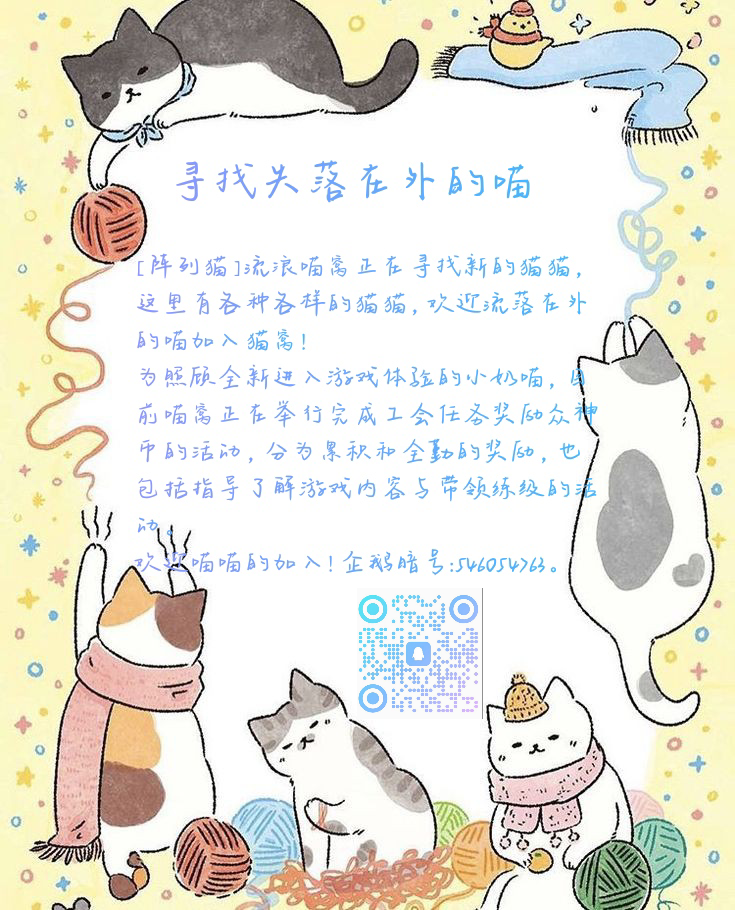 寻找失落在外的喵
[阵列猫]流浪喵窝正在寻找新的猫猫，
这里有各种各样的猫猫，欢迎流落在外
的喵加入猫窝！
为照顾全新进入游戏体验的小奶喵，目
前喵窝正在举行完成工会任务奖励众神
币的活动，分为累积和全勤的奖励，也
包括指导了解游戏内容与带领练级的活
动。
欢迎喵喵的加入！企鹅暗号:546054763。